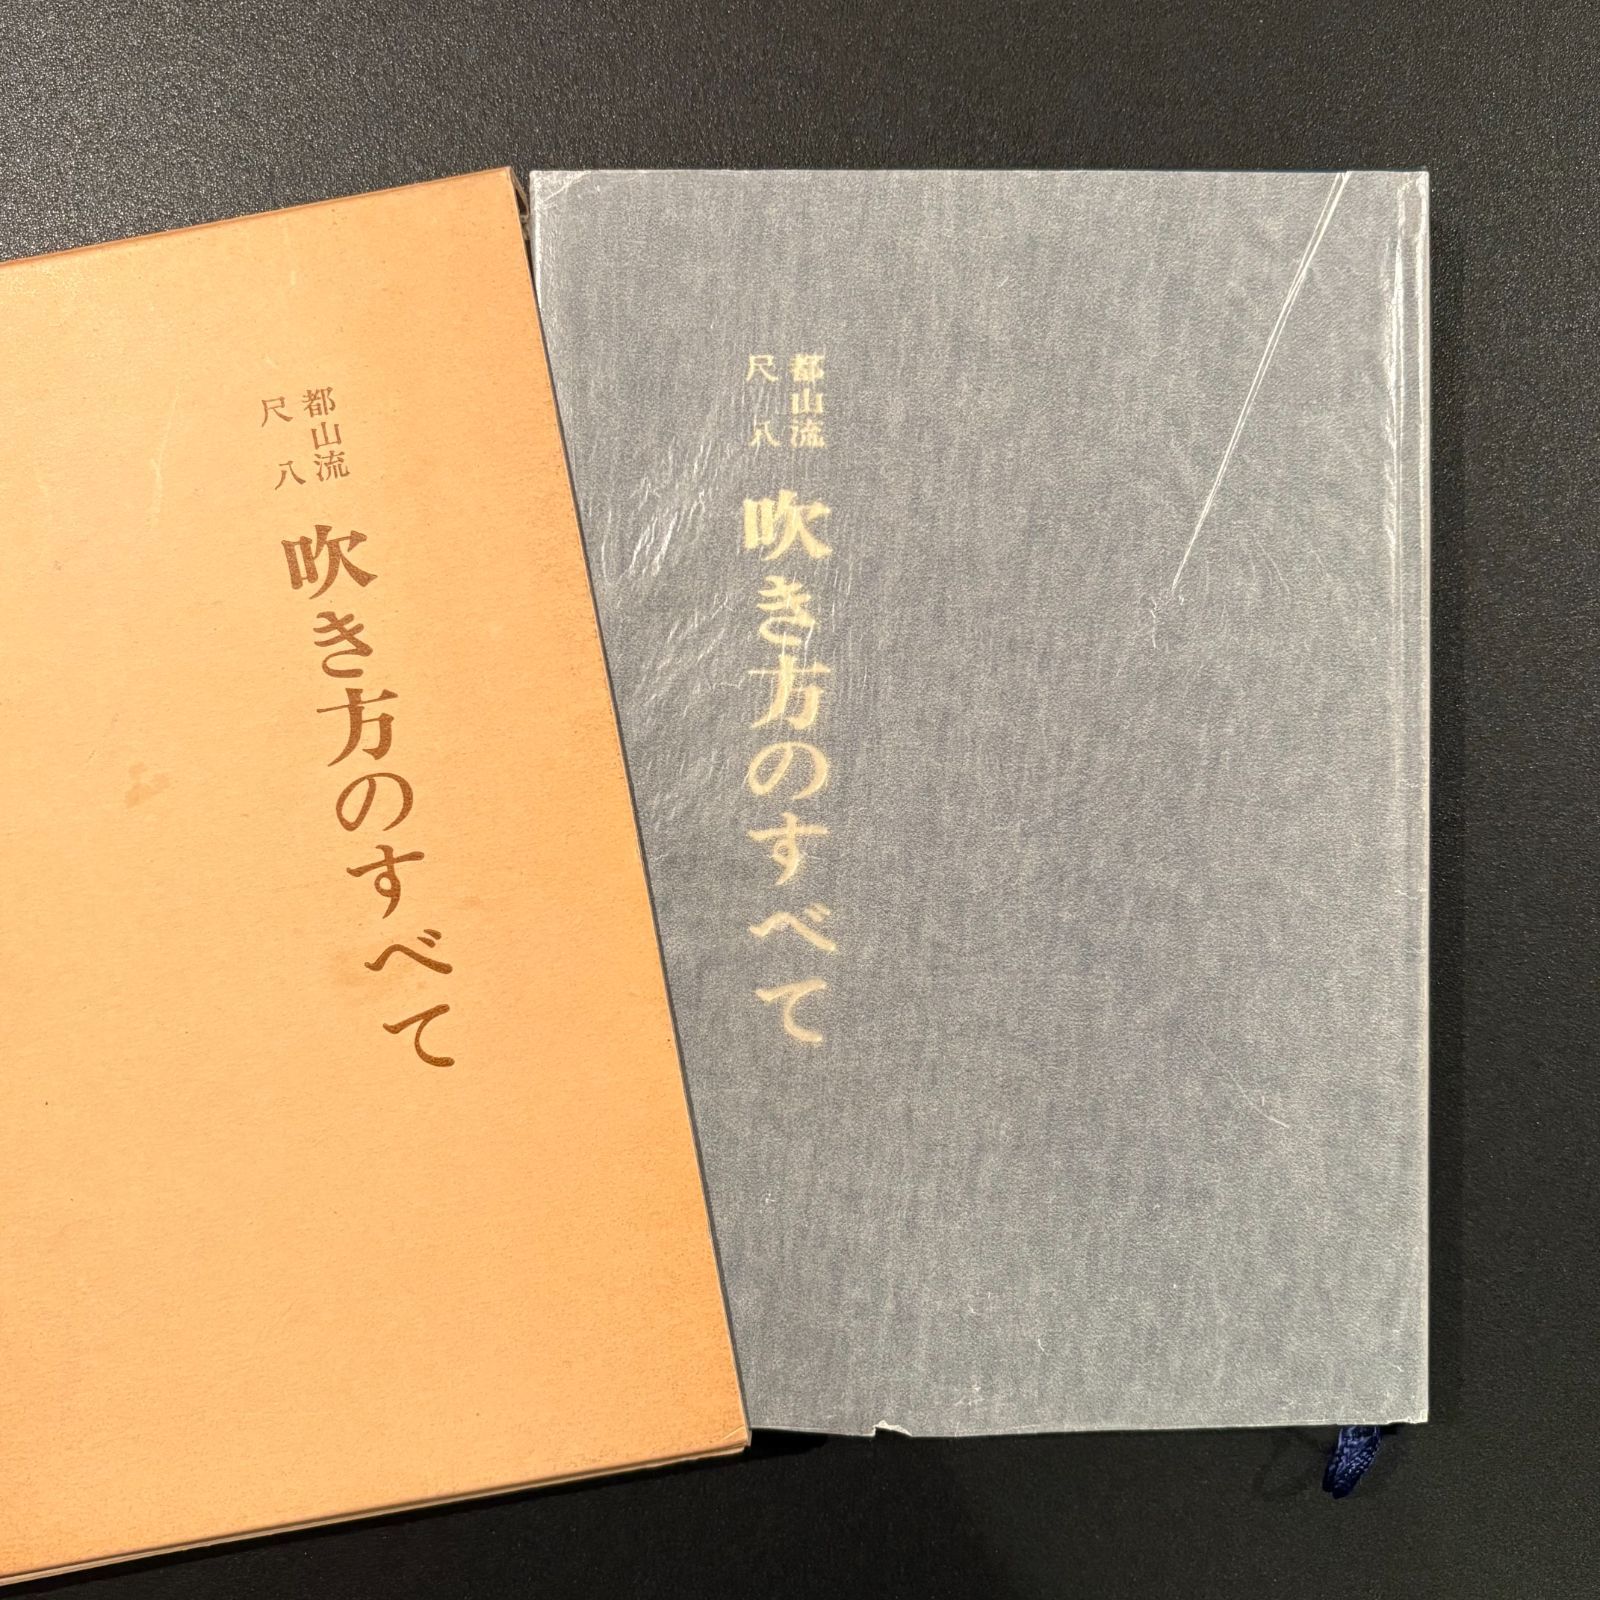 都山流
尺八
吹き方のすべて
都山流
尺八
吹き方のすべて